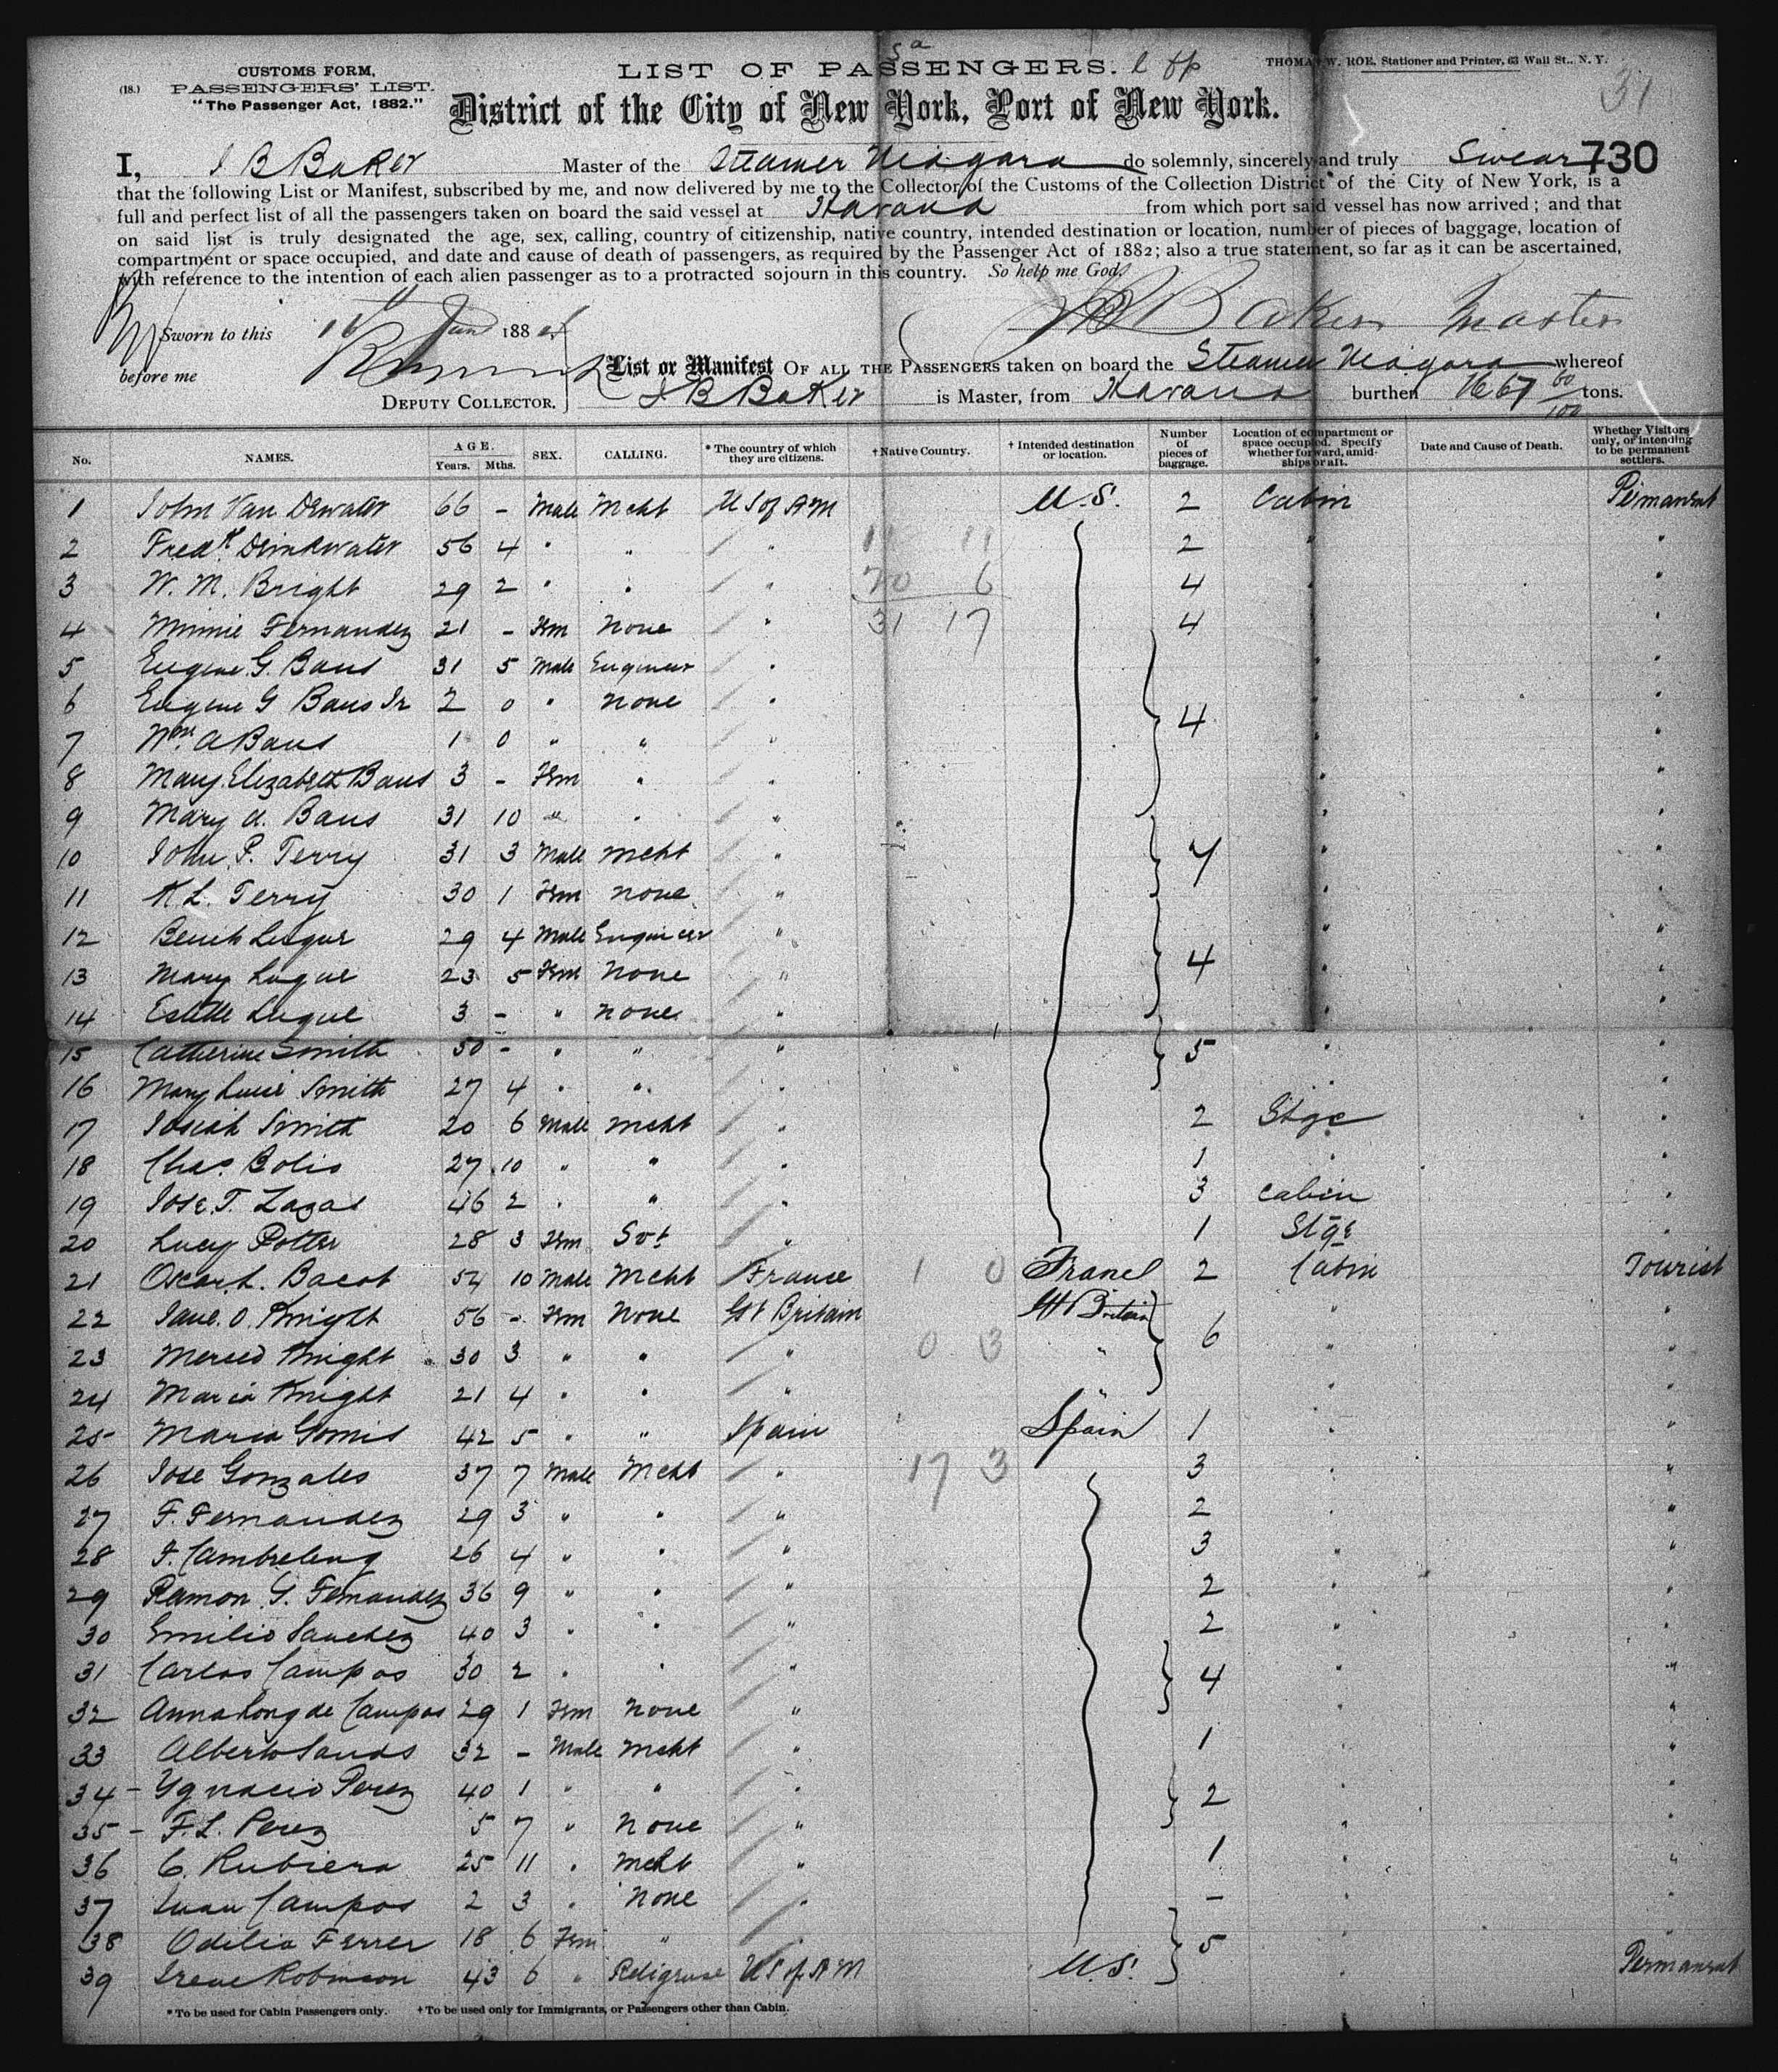 LIST OF PASSENGERS.
THOMAS W. ROE, Stationer and Printer, 63 Wall St., N. Y.
CUSTOMS FORM,
(18.) PASSENGERS' LIST.
"The Passenger Act, 1882."
31
District of the City of New York, Port of New York.
I, J B Baker Master of the Steamer Niagara do solemnly, sincerely and truly Swear 730
that the following List or Manifest, subscribed by me, and now delivered by me to the Collector of the Customs of the Collection District of the City of New York, is a
full and perfect list of all the passengers taken on board the said vessel at Havana from which port said vessel has now arrived; and that
on said list is truly designated the age, sex, calling, country of citizenship, native country, intended destination or location, number of pieces of baggage, location of
compartment or space occupied, and date and cause of death of passengers, as required by the Passenger Act of 1882; also a true statement, so far as it can be ascertained,
with reference to the intention of each alien passenger as to a protracted sojourn in this country. So help me God.
J B Baker Master
Sworn to this Jan 188
before me
DEPUTY COLLECTOR.
List or Manifest OF ALL THE PASSENGERS taken on board the Steamer Niagara whereof
J B Baker is Master, from Havana burthen 1667 60/100 tons.
No. NAMES. AGE. Years. Mths. SEX. CALLING. * The country of which they are citizens. † Native Country. † Intended destination or location. Number of pieces of baggage. Location of compartment or space occupied. Specify whether forward, amidships or aft. Date and Cause of Death. Whether Visitors only, or intending to be permanent settlers.
1 John Van Dewater 66 - Male Mcht U S of A M U.S. 2 Cabin Permanent
2 Fredk Drinkwater 56 4 " " " 11 11 2 " "
3 W. M. Bright 29 2 " " " 20 6 4 " "
4 Minnie Fernandez 21 - Fem None " 31 17 4 " "
5 Eugene G. Baus 31 5 Male Engineer " " "
6 Eugene G Baus Jr 2 0 " None " " "
7 Wm. A Baus 1 0 " " " 4 " "
8 Mary Elizabeth Baus 3 - Fem " " " "
9 Mary A. Baus 31 10 " " " " "
10 John P. Terry 31 3 Male Mcht " 4 " "
11 K L. Terry 30 1 Fem None " " "
12 29 4 Male Engineer " " "
13 Mary Lugue 23 5 Fem None " 4 " "
14 Estelle Lugue 3 - " None " " "
15 Catherine Smith 50 - " " " 5 " "
16 Mary Smith 27 4 " " " " "
17 Josiah Smith 20 6 Male Mcht " 2 Stge "
18 Chas. Bolis 27 10 " " " 1 " "
19 Jose. T. 46 2 " " " 3 Cabin "
20 Lucy Potter 28 3 Fem Svt " 1 Stge "
21 Oscar. L. Bacot 54 10 Male Mcht France 1 0 France 2 Cabin Tourist
22 Jane. O. Knight 56 - Fem None Gt Britain Gt Britain " "
23 Merced Knight 30 3 " " " 0 3 " 6 " "
24 Maria Knight 21 4 " " " " " "
25 Maria Gomis 42 5 " " Spain Spain 1 " "
26 Jose Gonzales 37 7 Male Mcht " 17 3 3 " "
27 F. Fernandez 29 3 " " " 2 " "
28 F. Cambreleng 26 4 " " " 3 " "
29 Ramon G. Fernandez 36 9 " " " 2 " "
30 Emilio Sanchez 40 3 " " " 2 " "
31 Carlos Campos 30 2 " " " 4 " "
32 Anna Long de Campos 29 1 Fem None " " "
33 Alberto Sands 32 - Male Mcht " 1 " "
34 - Ygnacio Perez 40 1 " " " 2 " "
35 - F. L. Perez 5 7 " None " " "
36 C. Rubiera 25 11 " Mcht " 1 " "
37 Juan Campos 2 3 " None " - " "
38 Odilia Ferrer 18 6 Fem " " 5 " "
39 Irene Robinson 43 6 " Religruse U S of A M U.S. " Permanent
* To be used for Cabin Passengers only. † To be used only for Immigrants, or Passengers other than Cabin.